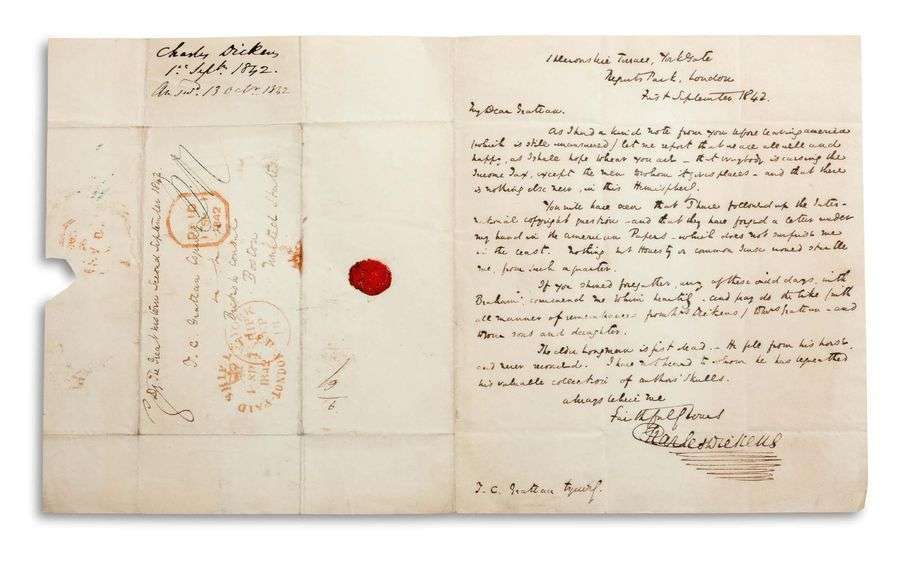 Charles Dickens
1st Septr. 1842.
Answd. 13 Octr. 1842
By The Great Western Second September 1842
T. C. Grattan Esquire
British Consul
in
Boston
United States
PAID
1842
LONDON
1 Devonshire Terrace, York Gate
Regents Park, London
First September 1842.
My Dear Grattan.
As I had a kind note from you before leaving america
(which is still unanswered) let me report that we are all well and
happy, as I shall hope to hear you are - that everybody is cursing the
Income Tax, except the men to whom it gives places - and that there
is nothing else new, in this Hemisphere.
You will have seen that I have followed up the Inter-
national copyright question - and that they have forged a letter under
my hand in the american Papers - which does not surprise me
in the least. Nothing but Honesty or common sense would startle
me, from such a quarter.
If you should foregather, any of these odd days, with
commend me to him heartily - and pay do the like (with
all manner of remembrances from Mrs Dickens) to Mrs Grattan - and
to your sons and daughter.
The elder Longman is just dead - He fell from his horse
and never rec. I have not heard to whom he has bequeathed
his valuable collection of authors' skulls.
always believe me
Faithfully Yours
Charles Dickens
T. C. Grattan Esquire.